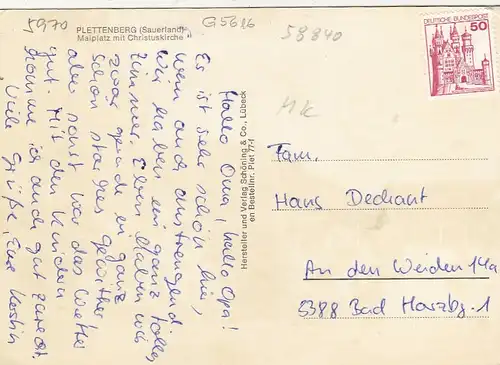 5970
G5616
58840
PLETTENBERG (Sauerland)
Maiplatz mit Christuskirche
DEUTSCHE BUNDESPOST
50
Hallo Oma, hallo Opa!
Es ist sehr schön hier,
wenn auch anstrengend.
Wir haben ein ganz tolles
Zimmer. Eben haben wir
zwar gerade ein ganz
schön starkes Gewitter
aber sonst war das Wetter
gut. Mit den Kindern
komme ich auch gut zurecht.
Viele Grüße, Eure Kerstin
Hersteller und Verlag Schöning & Co., Lübeck
Bestellnr. Plet 77/1
Fam.
Hans Dechant
An den Weiden 14a
5388 Bad Harzbg. 1